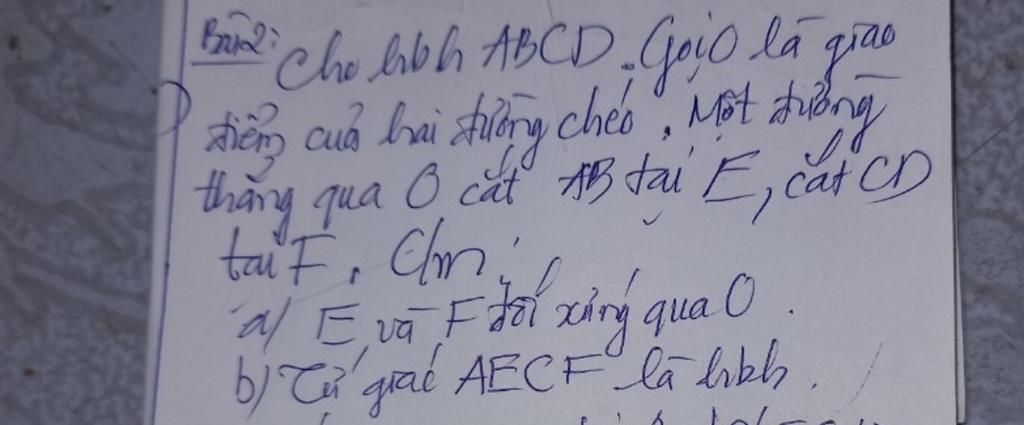 Bài 2: Cho hbh ABCD. Gọi O là giao
điểm của hai đường chéo. Một đường
thẳng qua O cắt AB tại E, cắt CD
tại F. Cm:
a/ E và F đối xứng qua O.
b) Tứ giác AECF là hbh.